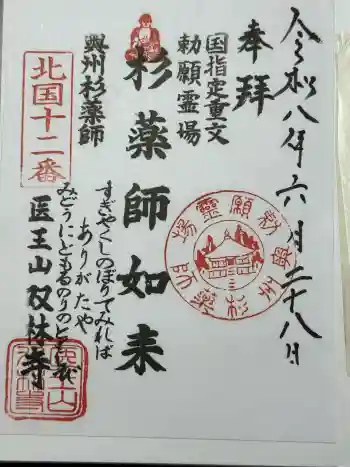 令和八年六月二十八日
奉拝
国指定重文
勅願霊場
杉薬師如来
奥州杉薬師
北国十二番
すぎやくしのぼりてみれば
ありがたや
みどうにともるのりのともしび
医王山双林寺